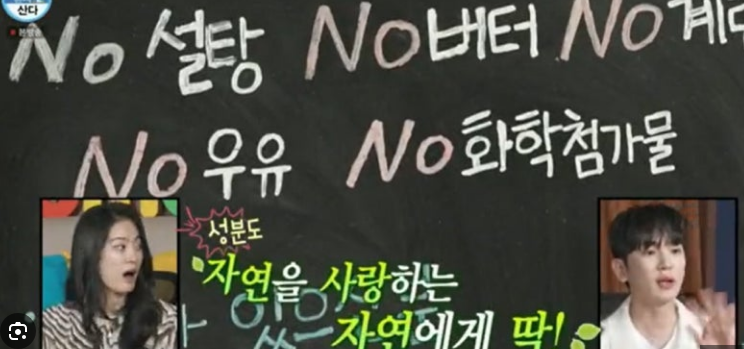 산다
No 설탕 No 버터 No 계
No 우유 No 화학첨가물
성분도
자연을 사랑하는
자연에게 딱!